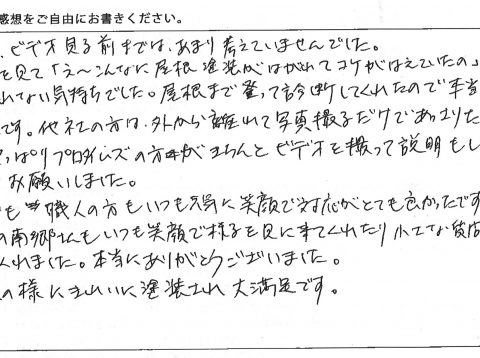 感想をご自由にお書きください。
、ビデオ見る前までは、あまり考えていませんでした。
を見て「え〜こんなに屋根塗装がはがれてコケがはえていたの」
れない気持ちでした。屋根まで登って診断してくれたので本当
です。他社の方は、外から離れて写真撮るだけであっさりた
っぱりプロタイムズの方がきちんとビデオを撮って説明もし
お願いしました。
も職人の方もいつも元気に笑顔で対応がとても良かったです
の南郷さんもいつも笑顔で様子を見に来てくれたり小さな
くれました。本当にありがとうございました。
の様にきれいに塗装され大満足です。